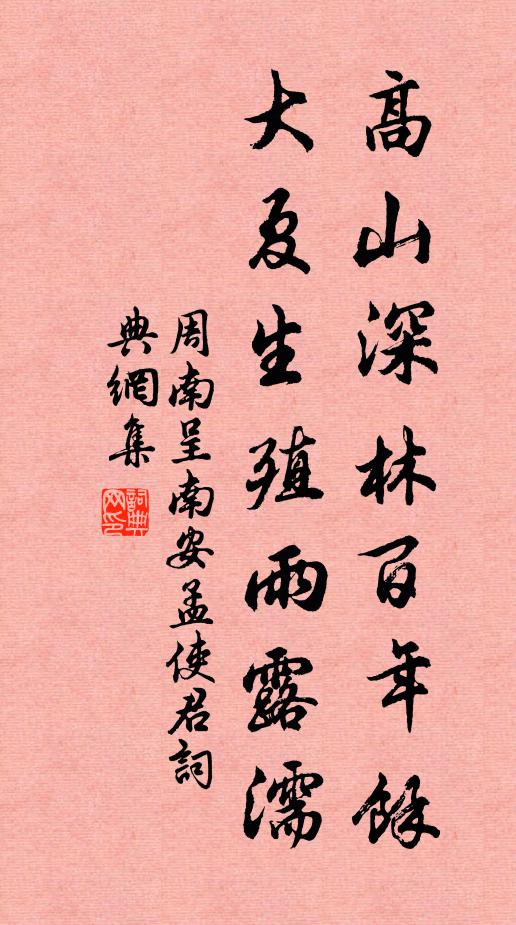 高山深林百年餘
大夏生殖雨露濡
周南呈南安孟使君詞
典網集
詞典
网印